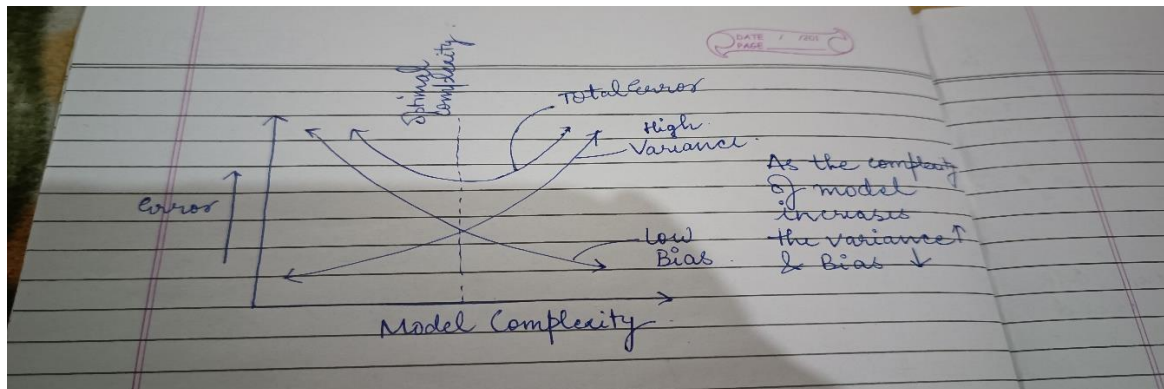 DATE / /201
PAGE
Optimal
Complexity.
Total Error
High
Variance.
Error
Low
Bias.
Model Complexity
As the complexity
of model
increases
the variance ↑
& Bias ↓